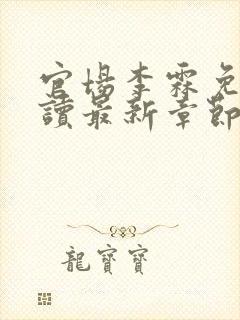 官場李霖免
讀最新章節
龍寶寶